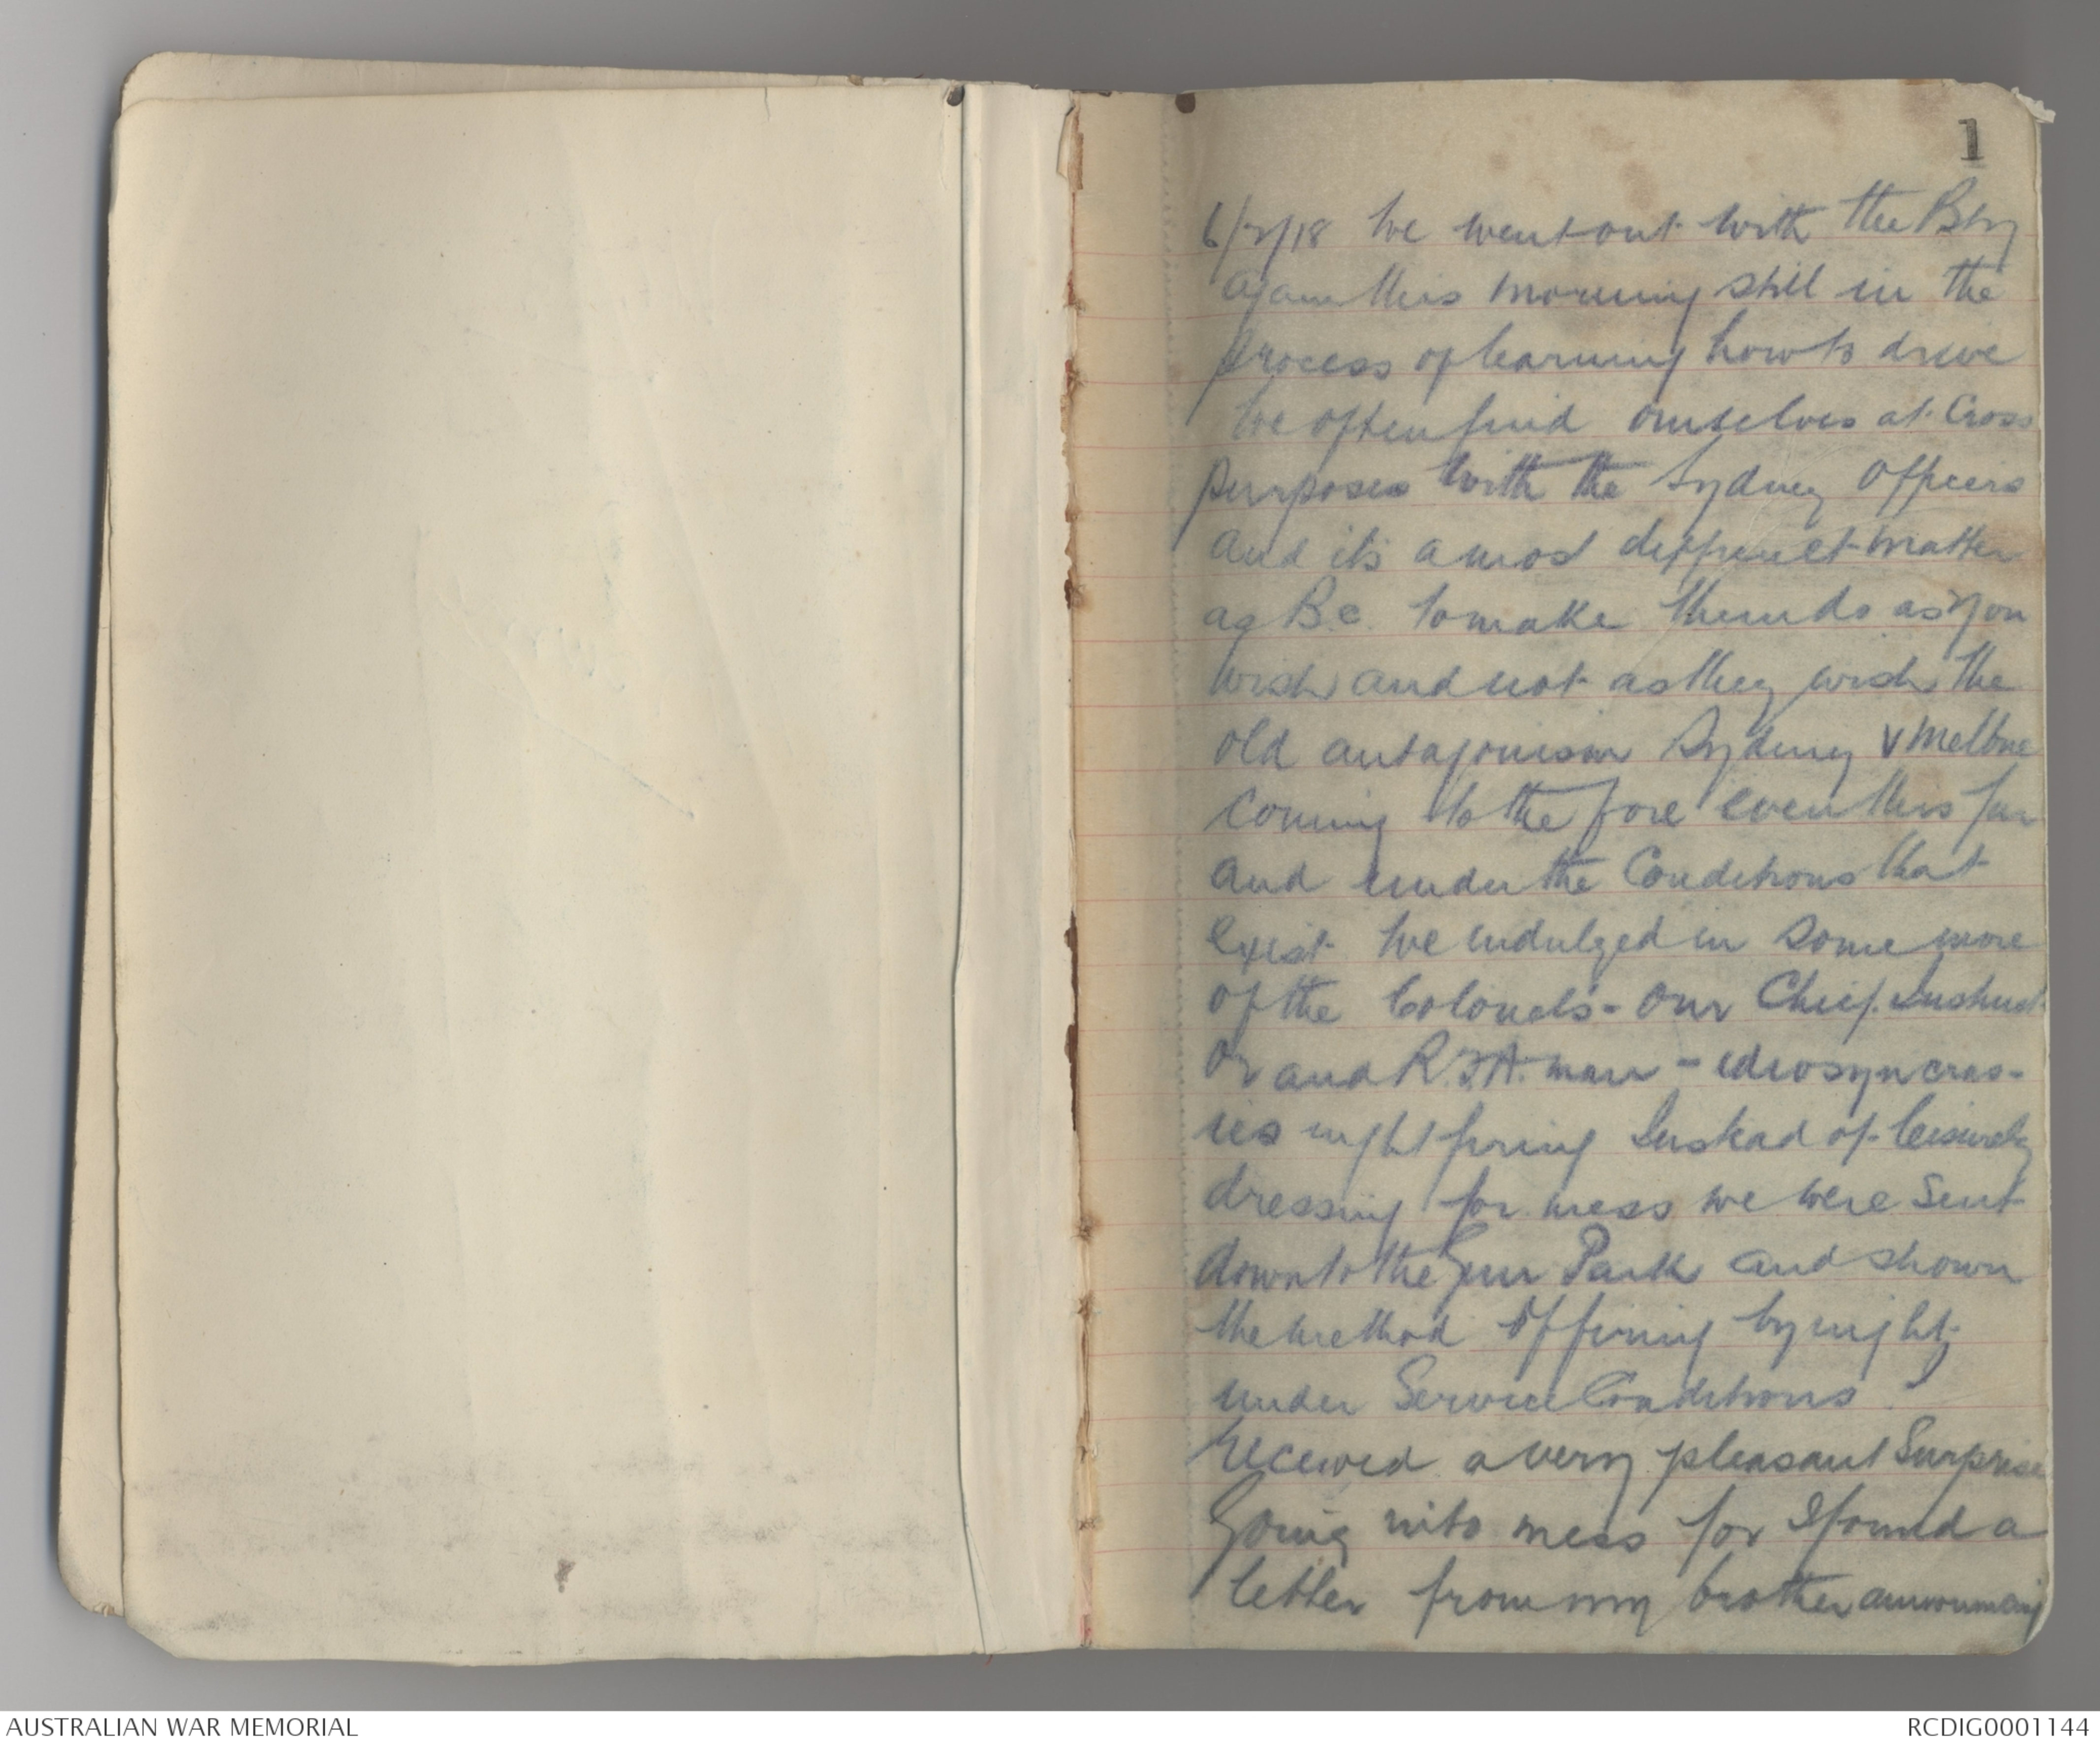 1
6/2/18 We went out with the Bty
again this morning still in the
process of learning how to drive
We often find ourselves at cross
purposes with the Sydney Officers
and its a most difficult matter
as B.C. to make them do as you
wish and not as they wish, the
old antagonism Sydney v Melbne
coming to the fore even this far
and under the Conditions that
exist. We indulged in some more
of the Colonels - our Chief Instruct
or and R.F.A. man - idiosyncras-
ies night firing Instead of leisurely
dressing for mess we were sent
down to the Gun Park and shown
the method of firing by night
under Service Conditions.
Received a very pleasant Surprise
Going into mess for I found a
letter from my brother announcing
AUSTRALIAN WAR MEMORIAL
RCDIG0001144